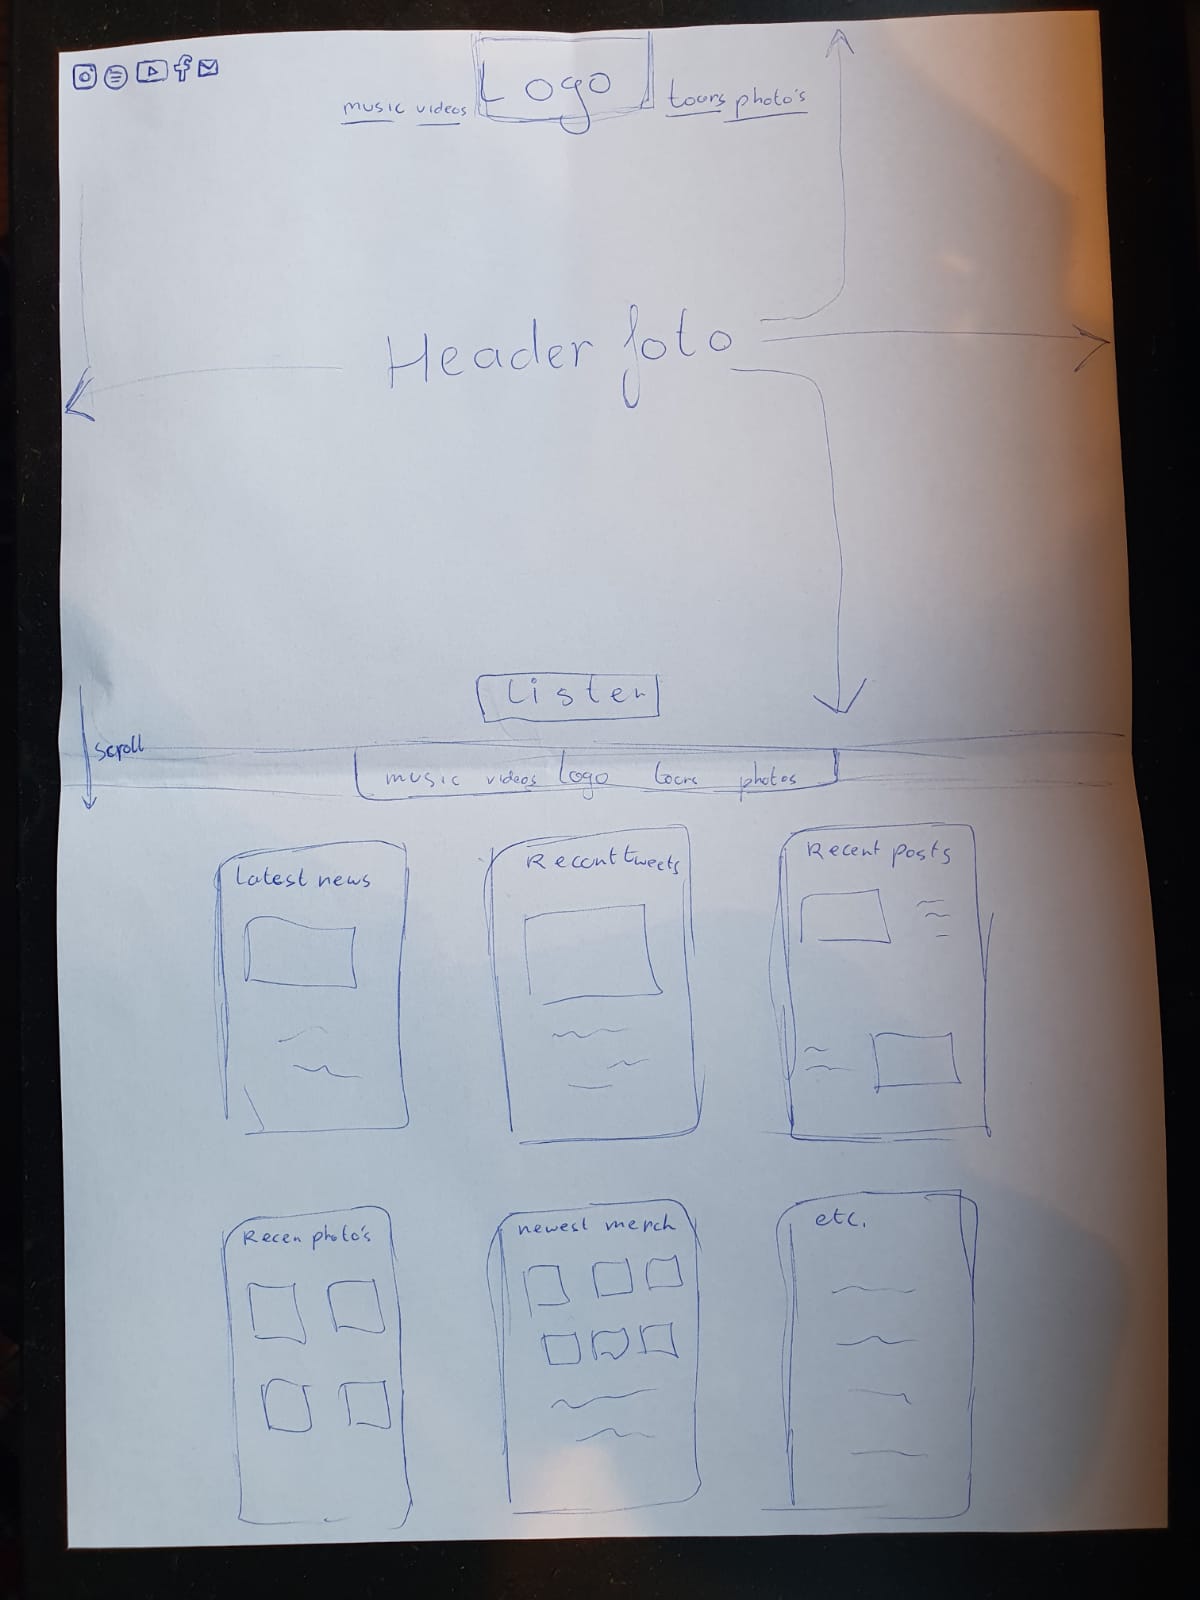 Logo
music videos
tours photo's
Header foto
Listen
scroll
music videos logo tours photos
Latest news
Recent tweets
Recent posts
Recen photo's
newest merch
etc.